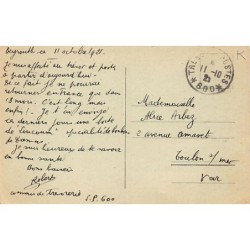 Beyrouth ce 11 octobre 1921.
je suis affecté au trésor et postes
à partir d'aujourd'hui.
De ce fait je ne pourrai
retourner en France que dans
18 mois. C'est long mais
tant pis! Je t'ai envoyé
ces derniers jours une boîte
de loucoum spécialité de bonbons
de
Je suis heureux de te savoir
en bonne santé
Bons baisers
commis de trésorerie S.P. 600
TRESOR ET POSTES
11-10
21
*600*
Mademoiselle
Alice Arbez
2 avenue
Toulon s/mer
Var